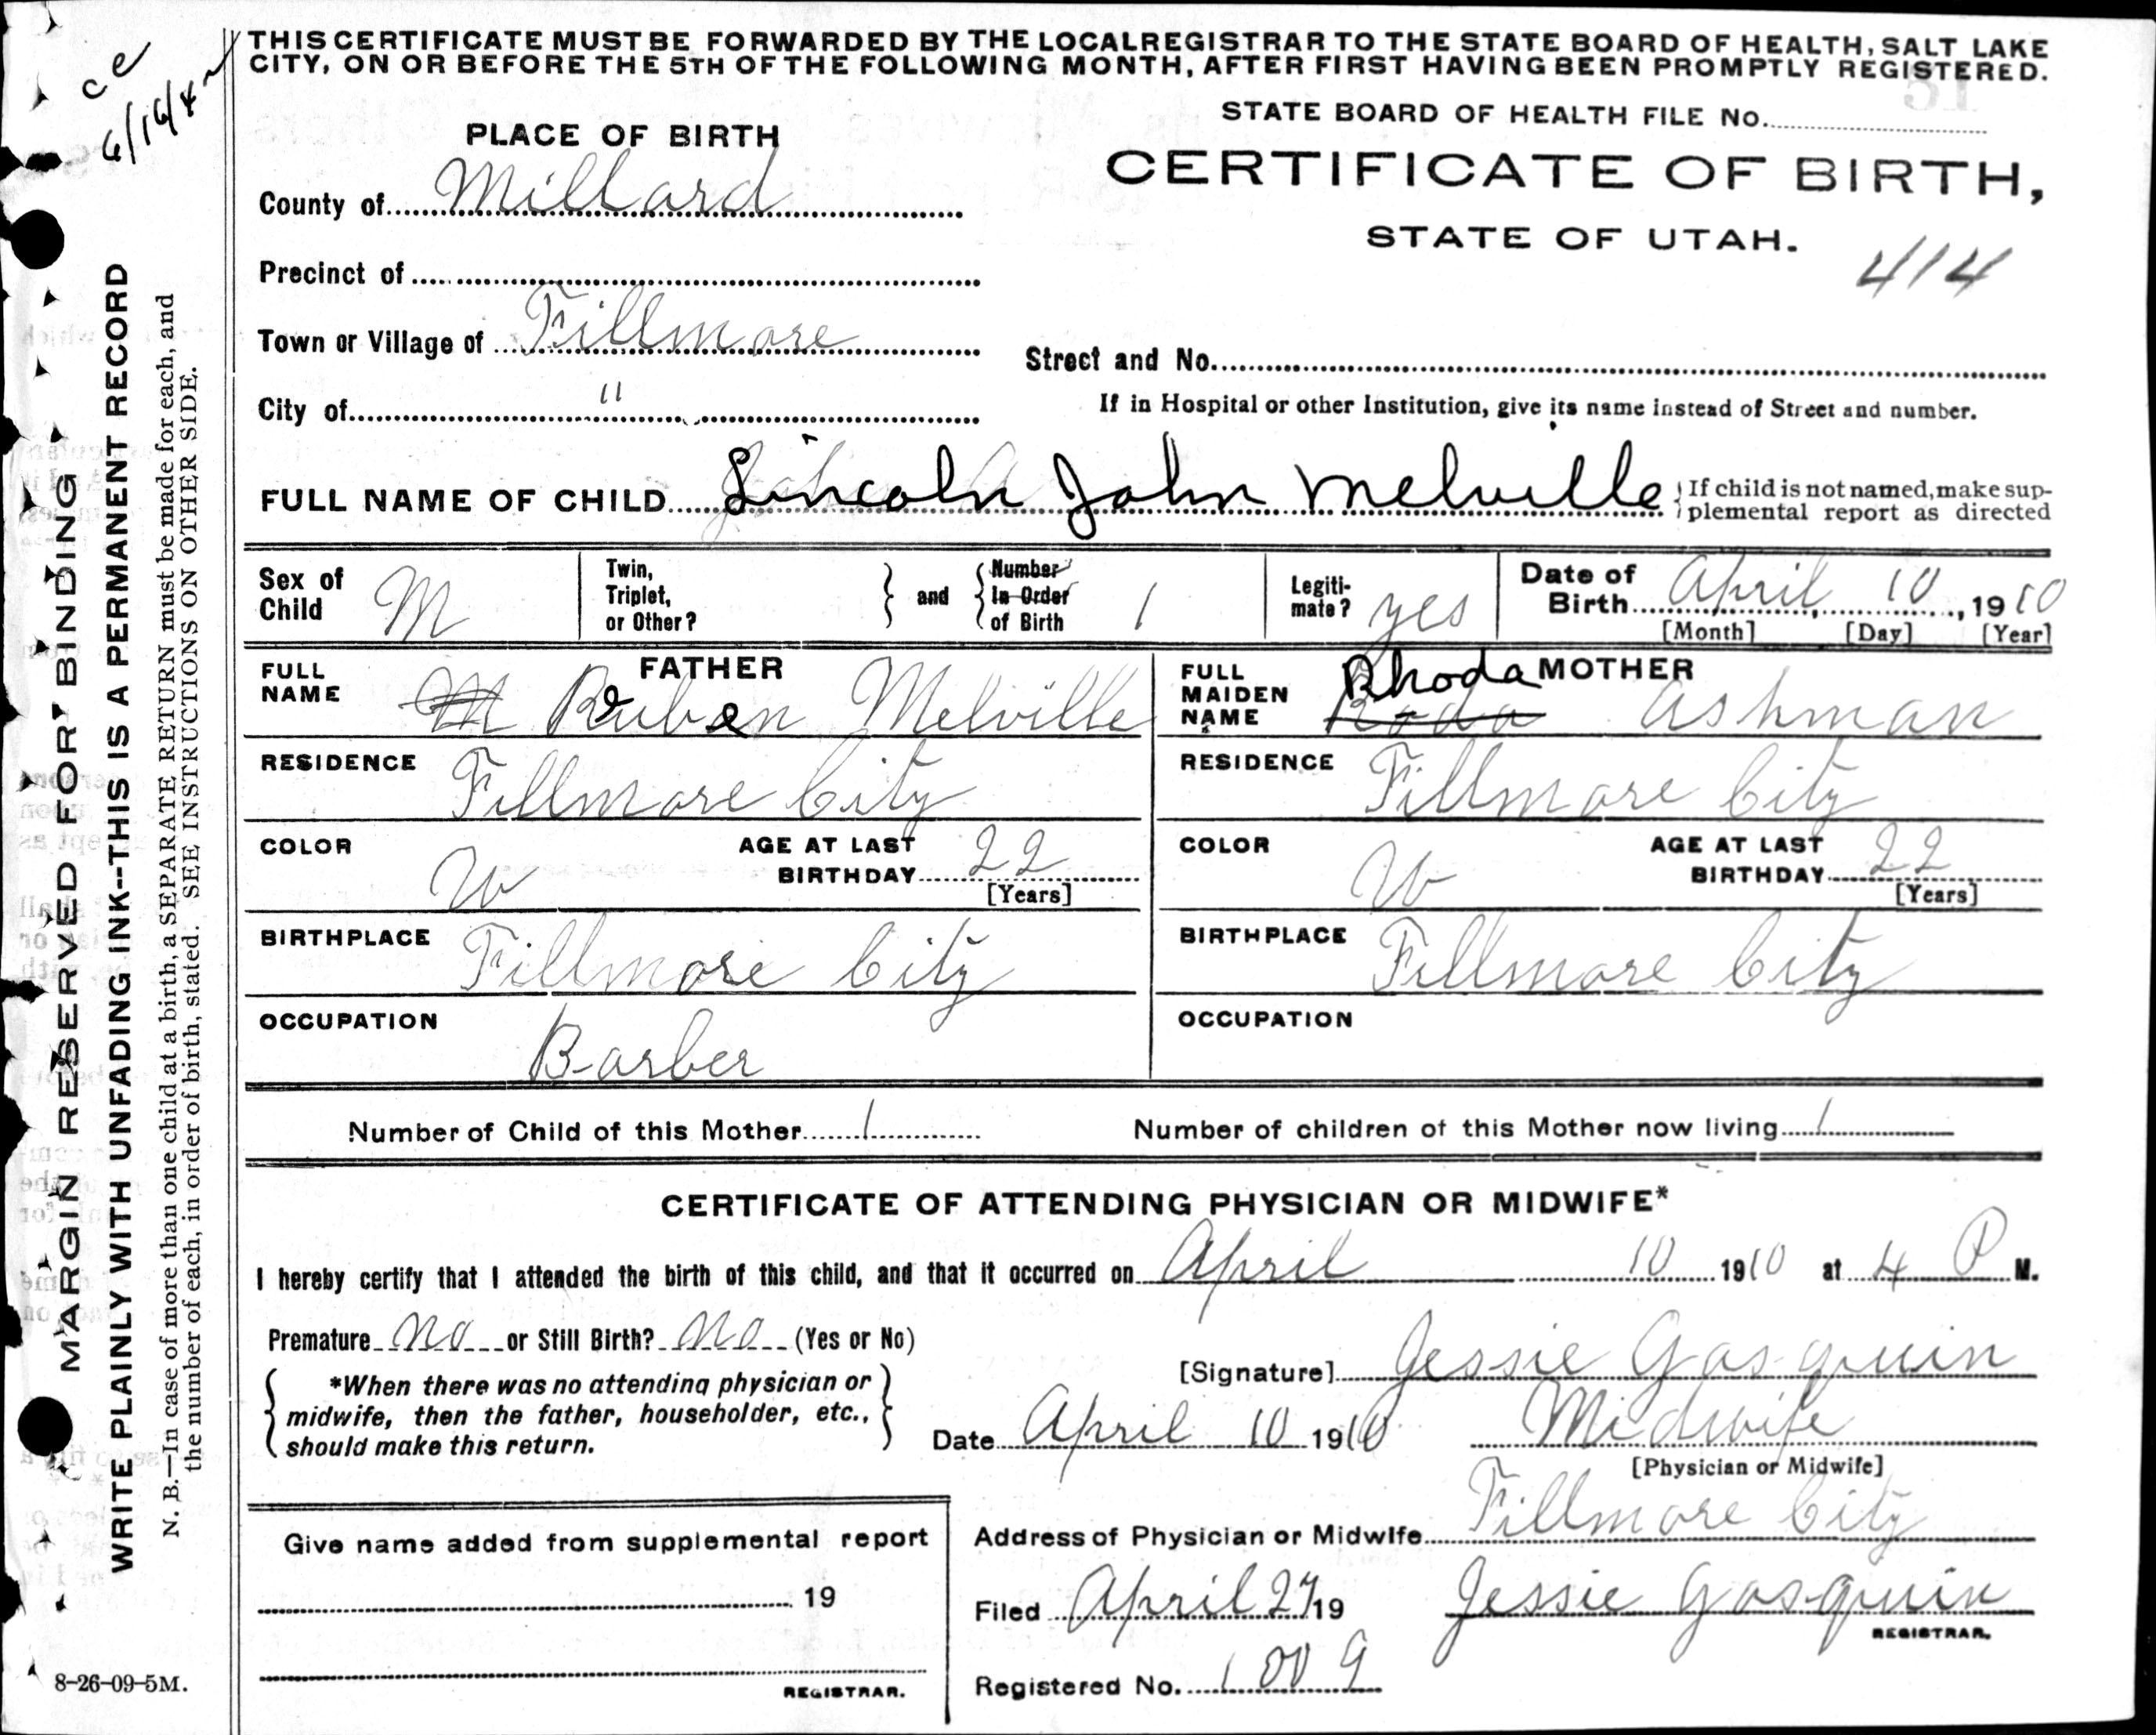 THIS CERTIFICATE MUST BE FORWARDED BY THE LOCAL REGISTRAR TO THE STATE BOARD OF HEALTH, SALT LAKE
CITY, ON OR BEFORE THE 5TH OF THE FOLLOWING MONTH, AFTER FIRST HAVING BEEN PROMPTLY REGISTERED.
ce
STATE BOARD OF HEALTH FILE No.
PLACE OF BIRTH
CERTIFICATE OF BIRTH,
STATE OF UTAH.
414
County of Millard
Precinct of
Town or Village of Fillmore
Street and No.
City of "
If in Hospital or other Institution, give its name instead of Street and number.
FULL NAME OF CHILD Lincoln John Melville
If child is not named, make sup-
plemental report as directed
Sex of Child M
Twin, Triplet, or Other?
and
Number In Order of Birth 1
Legiti-
mate? yes
Date of Birth April 10, 1910
[Month] [Day] [Year]
FATHER
FULL NAME M Reuben Melville
MOTHER
FULL MAIDEN NAME Rhoda Roda Ashman
RESIDENCE Fillmore City
RESIDENCE Fillmore City
COLOR W
AGE AT LAST BIRTHDAY 22
[Years]
COLOR W
AGE AT LAST BIRTHDAY 22
[Years]
BIRTHPLACE Fillmore City
BIRTHPLACE Fillmore City
OCCUPATION Barber
OCCUPATION
Number of Child of this Mother 1
Number of children of this Mother now living 1
CERTIFICATE OF ATTENDING PHYSICIAN OR MIDWIFE*
I hereby certify that I attended the birth of this child, and that it occurred on April 10 1910 at 4 P M.
Premature no or Still Birth? no (Yes or No)
[Signature] Jessie Gasquin
*When there was no attending physician or
midwife, then the father, householder, etc.,
should make this return.
Date April 10 1910
Midwife
[Physician or Midwife]
Address of Physician or Midwife Fillmore City
Give name added from supplemental report
19
REGISTRAR.
Filed April 27 19
Jessie Gasquin
REGISTRAR.
Registered No.
MARGIN RESERVED FOR BINDING
WRITE PLAINLY WITH UNFADING INK--THIS IS A PERMANENT RECORD
N. B.—In case of more than one child at a birth, a SEPARATE RETURN must be made for each, and
the number of each, in order of birth, stated. SEE INSTRUCTIONS ON OTHER SIDE.
8-26-09-5M.